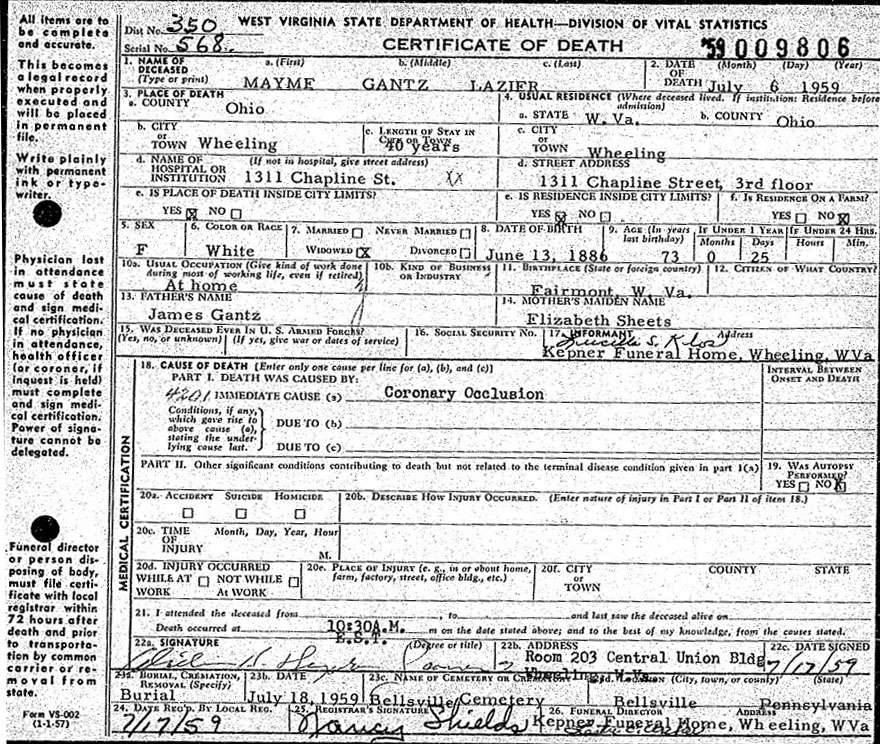 All items are to be complete and accurate.
This becomes a legal record when properly executed and will be placed in permanent file.
Write plainly with permanent ink or type-writer.
Physician last in attendance must state cause of death and sign medical certification. If no physician in attendance, health officer (or coroner, if inquest is held) must complete and sign medical certification. Power of signature cannot be delegated.
Funeral director or person disposing of body, must file certificate with local registrar within 72 hours after death and prior to transportation by common carrier or removal from state.
Form VS-002
(1-1-57)
WEST VIRGINIA STATE DEPARTMENT OF HEALTH—DIVISION OF VITAL STATISTICS
Dist No. 350
Serial No. 568
CERTIFICATE OF DEATH
'59 009806
1. NAME OF DECEASED (Type or print) a. (First) b. (Middle) c. (Last)
MAYME GANTZ LAZIER
2. DATE OF DEATH (Month) (Day) (Year)
July 6 1959
3. PLACE OF DEATH
a. COUNTY Ohio
4. USUAL RESIDENCE (Where deceased lived. If institution: Residence before admission)
a. STATE W. Va. b. COUNTY Ohio
b. CITY OR TOWN Wheeling
c. LENGTH OF STAY IN CITY OR TOWN 40 years
c. CITY OR TOWN Wheeling
d. NAME OF HOSPITAL OR INSTITUTION (If not in hospital, give street address)
1311 Chapline St.
d. STREET ADDRESS
1311 Chapline Street, 3rd floor
e. IS PLACE OF DEATH INSIDE CITY LIMITS?
YES NO
e. IS RESIDENCE INSIDE CITY LIMITS?
YES NO
f. IS RESIDENCE ON A FARM?
YES NO
5. SEX F
6. COLOR OR RACE White
7. MARRIED NEVER MARRIED
WIDOWED X DIVORCED
8. DATE OF BIRTH
June 13, 1886
9. AGE (In years last birthday) 73
IF UNDER 1 YEAR Months 0 Days 25
IF UNDER 24 HRS. Hours Min.
10a. USUAL OCCUPATION (Give kind of work done during most of working life, even if retired)
At home
10b. KIND OF BUSINESS OR INDUSTRY
11. BIRTHPLACE (State or foreign country)
Fairmont, W. Va.
12. CITIZEN OF WHAT COUNTRY?
13. FATHER'S NAME
James Gantz
14. MOTHER'S MAIDEN NAME
Elizabeth Sheets
15. WAS DECEASED EVER IN U. S. ARMED FORCES?
(Yes, no, or unknown) (If yes, give war or dates of service)
16. SOCIAL SECURITY NO.
17. INFORMANT Address
Kepner Funeral Home, Wheeling, WVa
18. CAUSE OF DEATH (Enter only one cause per line for (a), (b), and (c))
PART I. DEATH WAS CAUSED BY:
4201 IMMEDIATE CAUSE (a) Coronary Occlusion
Conditions, if any, which gave rise to above cause (a), stating the underlying cause last.
DUE TO (b)
DUE TO (c)
INTERVAL BETWEEN ONSET AND DEATH
PART II. Other significant conditions contributing to death but not related to the terminal disease condition given in part I(a)
19. WAS AUTOPSY PERFORMED?
YES NO X
MEDICAL CERTIFICATION
20a. ACCIDENT SUICIDE HOMICIDE
20b. DESCRIBE HOW INJURY OCCURRED. (Enter nature of injury in Part I or Part II of item 18.)
20c. TIME OF INJURY Month, Day, Year, Hour
M.
20d. INJURY OCCURRED
WHILE AT WORK NOT WHILE AT WORK
20e. PLACE OF INJURY (e. g., in or about home, farm, factory, street, office bldg., etc.)
20f. CITY OR TOWN COUNTY STATE
21. I attended the deceased from , to and last saw the deceased alive on
Death occurred at 10:30A.M. E.S.T. m on the date stated above; and to the best of my knowledge, from the causes stated.
22a. SIGNATURE (Degree or title)
22b. ADDRESS
Room 203 Central Union Bldg
Wheeling, W.Va.
22c. DATE SIGNED
7/17/59
23a. BURIAL, CREMATION, REMOVAL (Specify)
Burial
23b. DATE
July 18, 1959
23c. NAME OF CEMETERY OR CREMATORY
Bellsville Cemetery
23d. LOCATION (City, town, or county) (State)
Bellsville Pennsylvania
24. DATE REC'D. BY LOCAL REG.
7/17/59
25. REGISTRAR'S SIGNATURE
Nancy Shields
26. FUNERAL DIRECTOR ADDRESS
Kepner Funeral Home, Wheeling, WVa